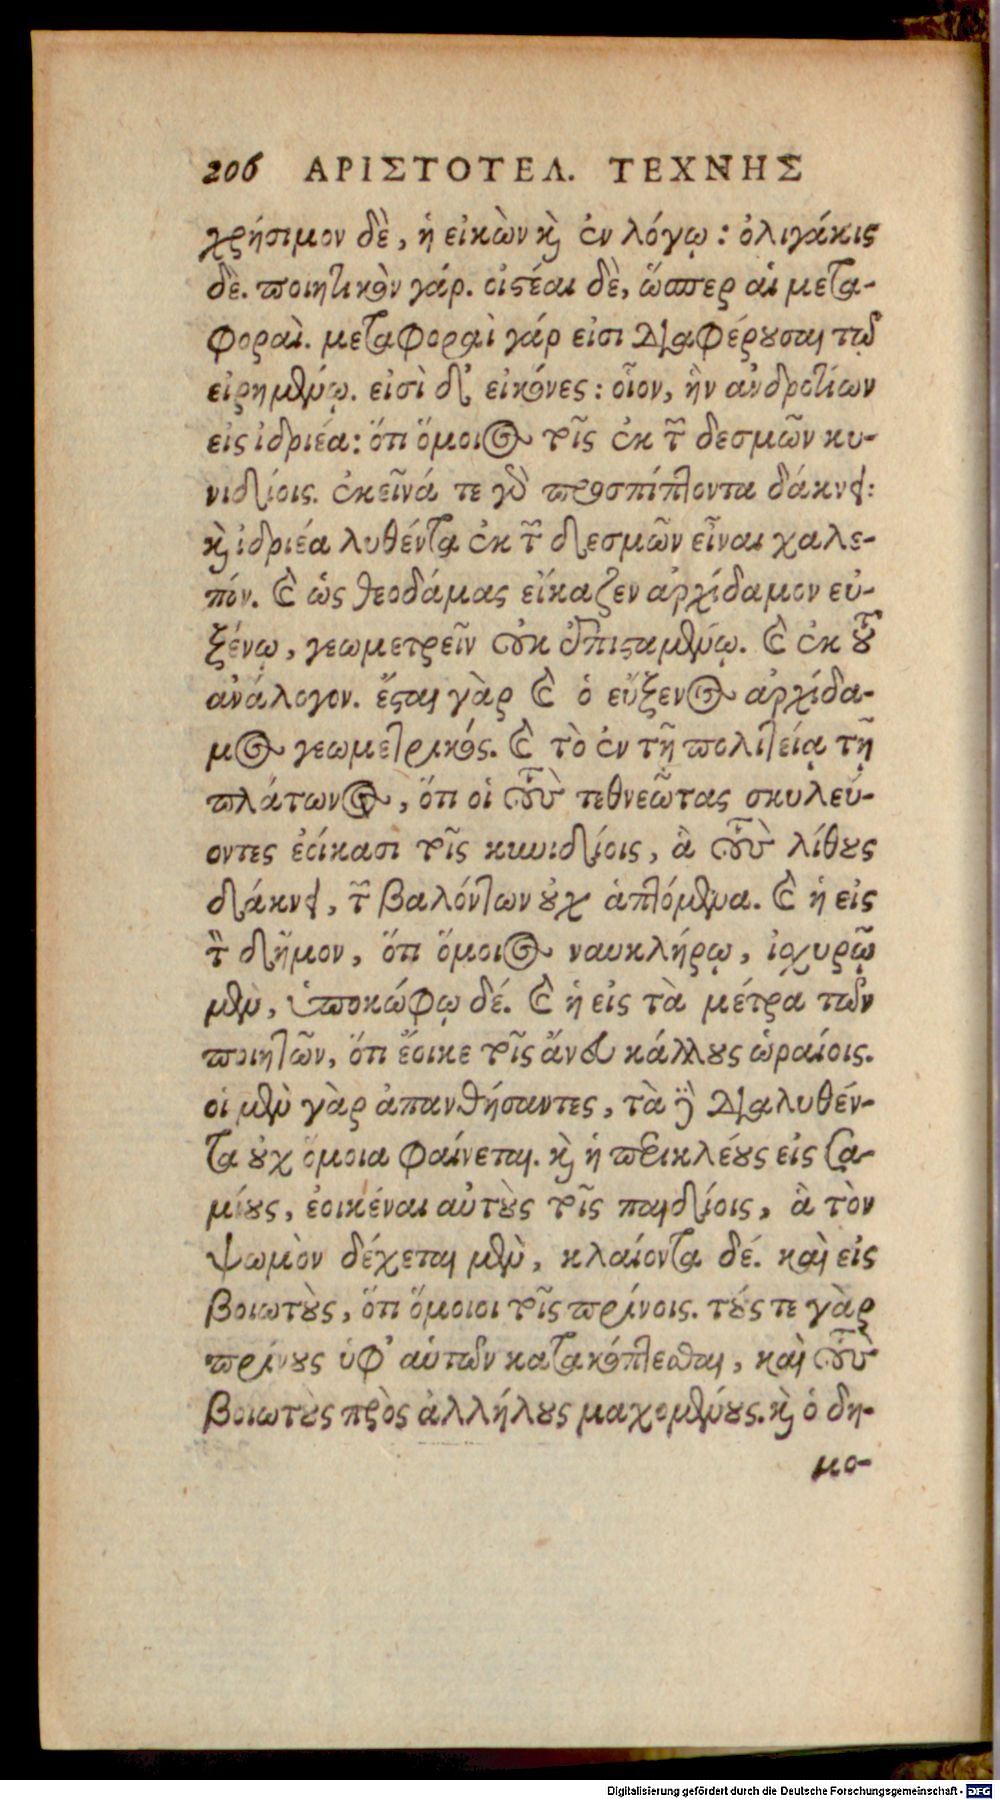 206 ΑΡΙΣΤΟΤΕΛ. ΤΕΧΝΗΣ
χρήσιμον δὲ, ἡ εἰκὼν καὶ ἐν λόγῳ : ὀλιγάκις
δὲ. ποιητικὸν γάρ. οἰστέαι δὲ, ὥσπερ αἱ μετα-
φοραί. μεταφοραὶ γάρ εἰσι διαφέρουσαι τῷ
εἰρημένῳ. εἰσὶ δ' εἰκόνες : οἷον, ἣν ἀνδροτίων
εἰς ἰδριέα: ὅτι ὅμοιος τοῖς ἐκ τῶν δεσμῶν κυ-
νιδίοις. ἐκεῖνά τε γὰρ προσπίπτοντα δάκνει:
καὶ ἰδριέα λυθέντα ἐκ τῶν δεσμῶν εἶναι χαλε-
πόν. καὶ ὡς θεοδάμας εἴκαζεν ἀρχίδαμον εὐ-
ξένῳ, γεωμετρεῖν οὐκ ἐπισταμένῳ. καὶ ἐκ τοῦ
ἀνάλογον. ἔσται γὰρ καὶ ὁ εὔξενος ἀρχίδα-
μος γεωμετρικός. καὶ τὸ ἐν τῇ πολιτείᾳ τῇ
πλάτωνος, ὅτι οἱ τοὺς τεθνεῶτας σκυλεύ-
οντες ἐοίκασι τοῖς κυνιδίοις, ἃ τοὺς λίθους
δάκνει, τῶν βαλόντων οὐχ ἁπτόμενα. καὶ ἡ εἰς
τὸν δῆμον, ὅτι ὅμοιος ναυκλήρῳ, ἰσχυρῷ
μὲν, ὑποκώφῳ δέ. καὶ ἡ εἰς τὰ μέτρα τῶν
ποιητῶν, ὅτι ἔοικε τοῖς ἄνευ κάλλους ὡραίοις.
οἱ μὲν γὰρ ἀπανθήσαντες, τὰ δὲ διαλυθέν-
τα οὐχ ὅμοια φαίνεται. καὶ ἡ περικλέους εἰς σα-
μίους, ἐοικέναι αὐτοὺς τοῖς παιδίοις, ἃ τὸν
ψωμὸν δέχεται μὲν, κλαίοντα δέ. καὶ εἰς
βοιωτοὺς, ὅτι ὅμοιοι τοῖς πρίνοις. τούς τε γὰρ
πρίνους ὑφ' αὑτῶν κατακόπτεσθαι, καὶ τοὺς
βοιωτοὺς πρὸς ἀλλήλους μαχομένους. καὶ ὁ δη-
μο-
Digitalisierung gefördert durch die Deutsche Forschungsgemeinschaft - DFG